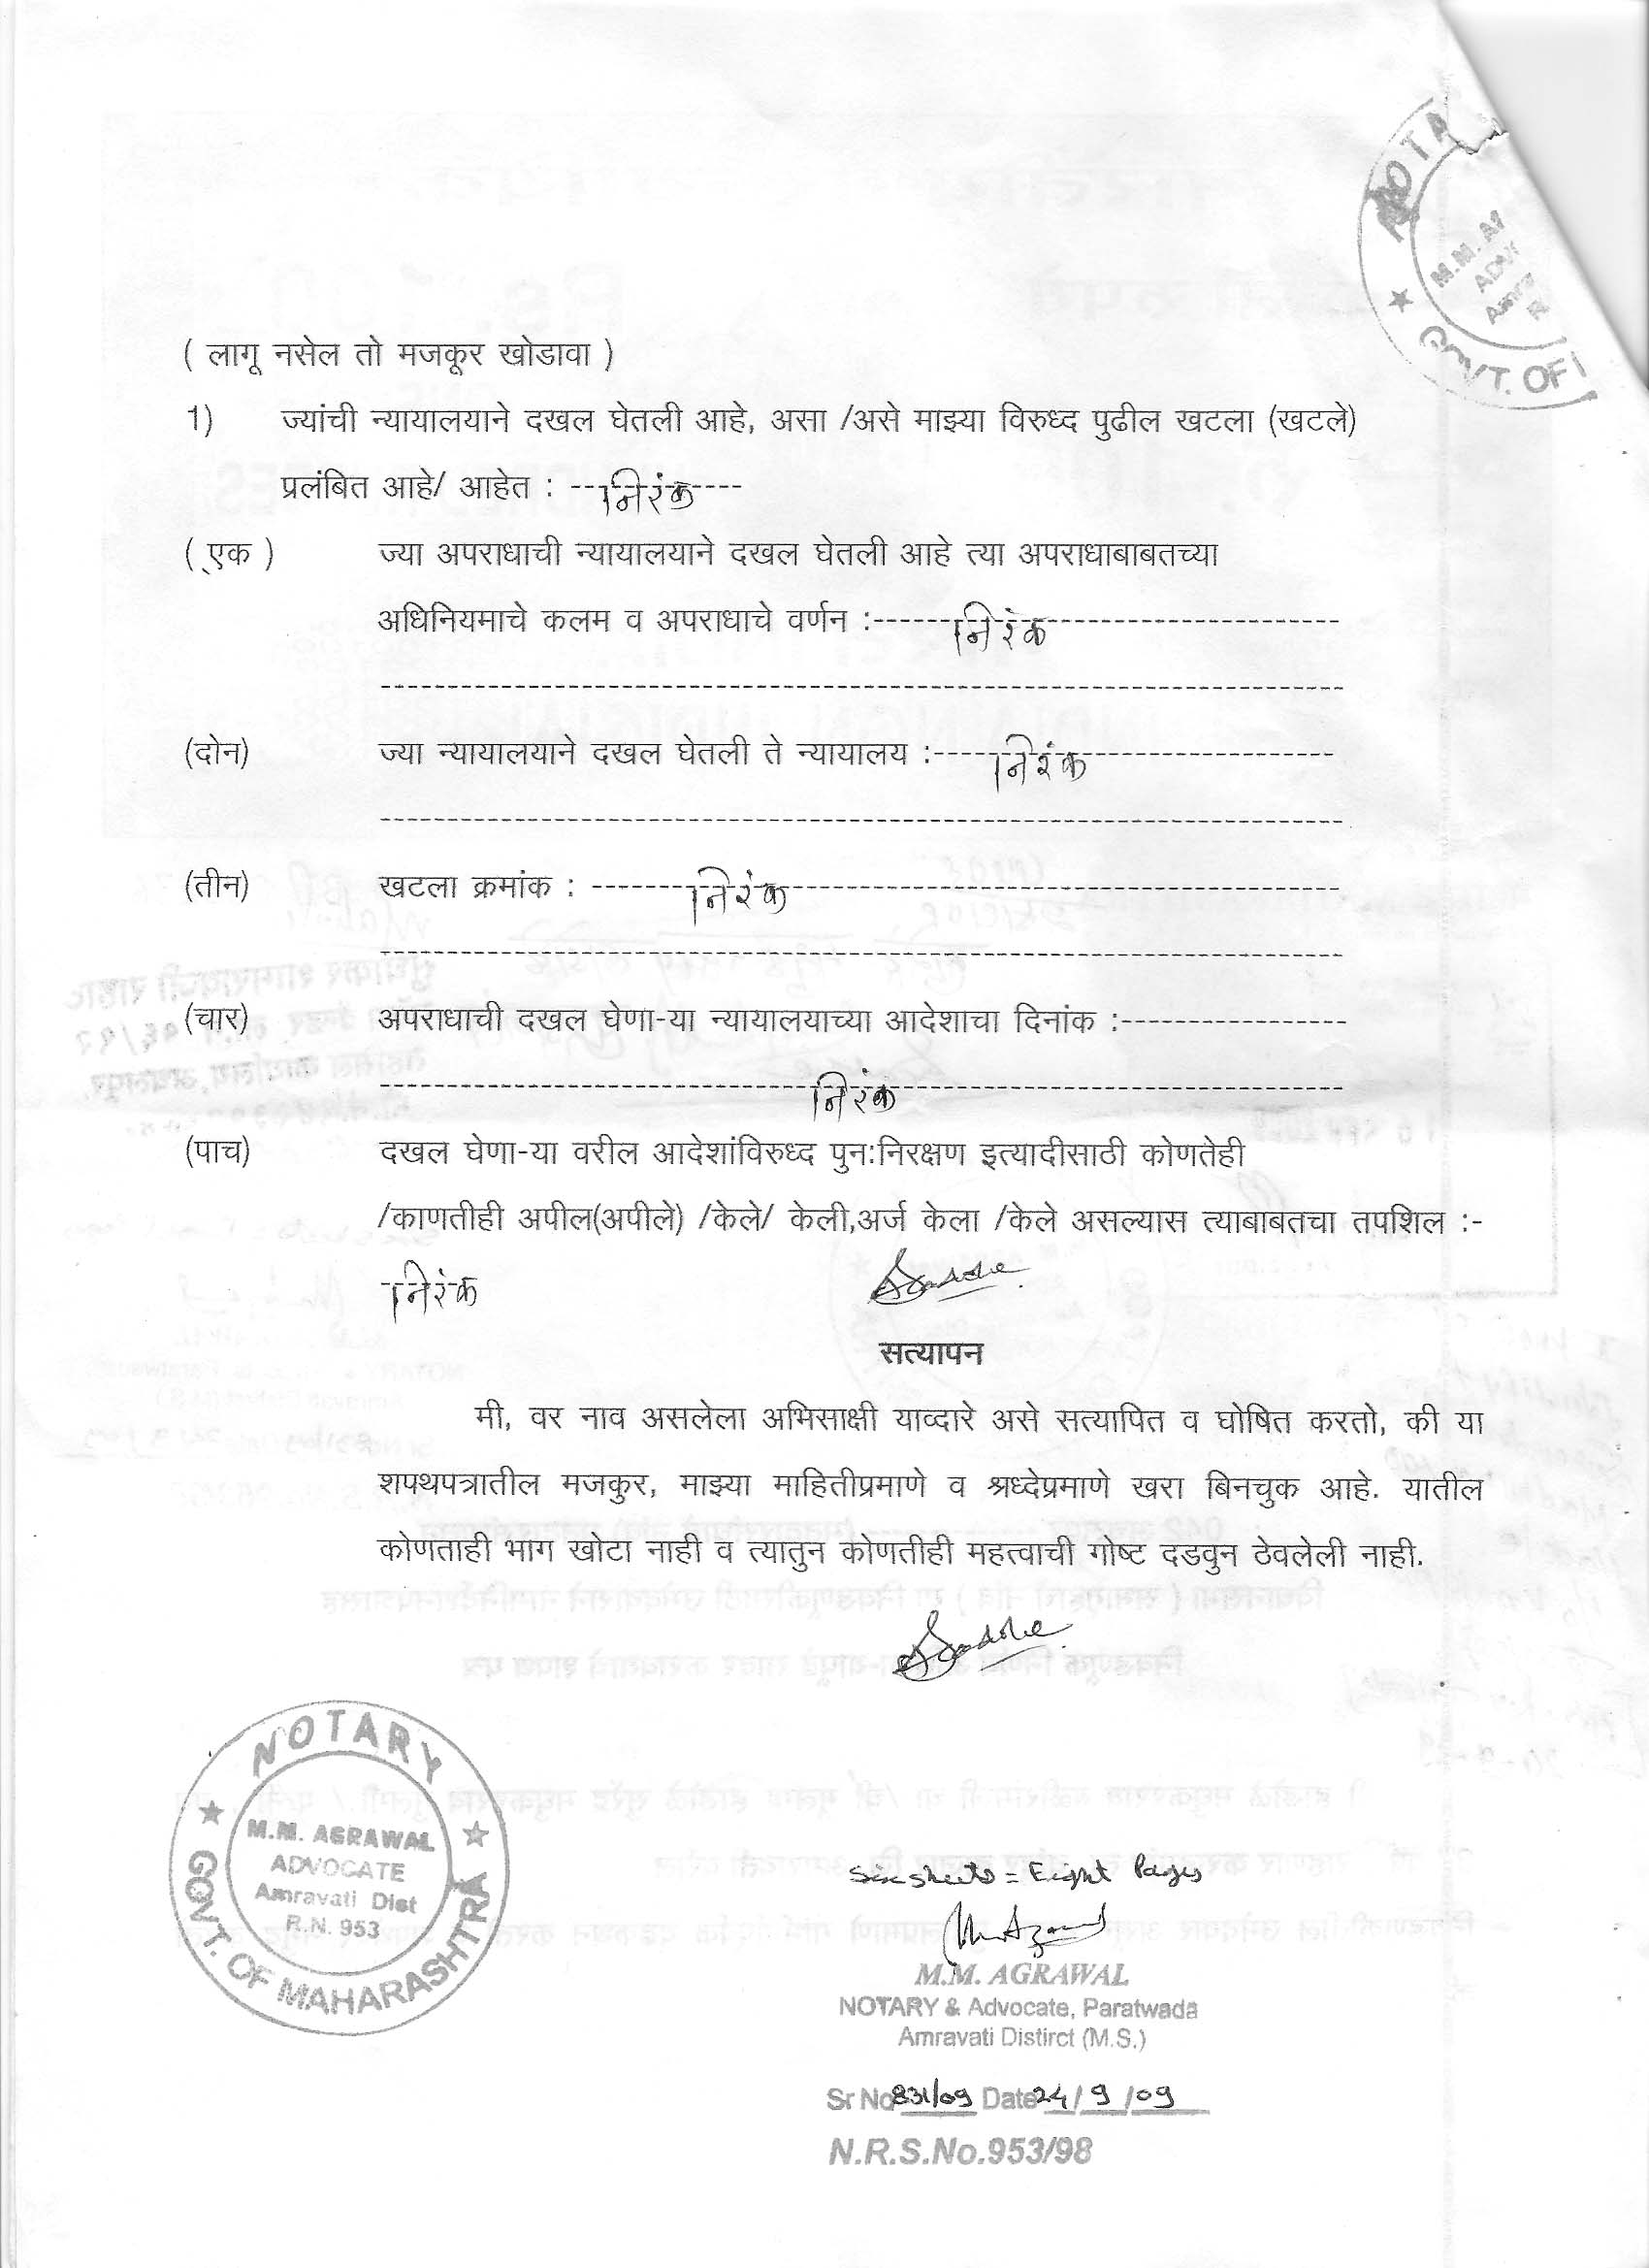 NOTA
M.M. A
ADV
GOVT. OF
( लागू नसेल तो मजकूर खोडावा )
1) ज्यांची न्यायालयाने दखल घेतली आहे, असा /असे माझ्या विरुध्द पुढील खटला (खटले)
प्रलंबित आहे/ आहेत : ---निरंक----
( एक ) ज्या अपराधाची न्यायालयाने दखल घेतली आहे त्या अपराधाबाबतच्या
अधिनियमाचे कलम व अपराधाचे वर्णन :------निरंक------------------------------
(दोन) ज्या न्यायालयाने दखल घेतली ते न्यायालय :-----निरंक-----------------------
(तीन) खटला क्रमांक : --------निरंक------------------------------------------
(चार) अपराधाची दखल घेणा-या न्यायालयाच्या आदेशाचा दिनांक :-----------------
---------------------------------निरंक----------------------------------
(पाच) दखल घेणा-या वरील आदेशांविरुध्द पुन:निरक्षण इत्यादीसाठी कोणतेही
/काणतीही अपील(अपीले) /केले/ केली,अर्ज केला /केले असल्यास त्याबाबतचा तपशिल :-
निरंक
सत्यापन
मी, वर नाव असलेला अभिसाक्षी याव्दारे असे सत्यापित व घोषित करतो, की या
शपथपत्रातील मजकुर, माझ्या माहितीप्रमाणे व श्रध्देप्रमाणे खरा बिनचुक आहे. यातील
कोणताही भाग खोटा नाही व त्यातुन कोणतीही महत्वाची गोष्ट दडवुन ठेवलेली नाही.
NOTARY
M.M. AGRAWAL
ADVOCATE
Amravati Dist
R.N. 953
GOVT. OF MAHARASHTRA
Six sheets = Eight Pages
M.M. AGRAWAL
NOTARY & Advocate, Paratwada
Amravati Distirct (M.S.)
Sr No 831/09 Date 24/9/09
N.R.S.No.953/98